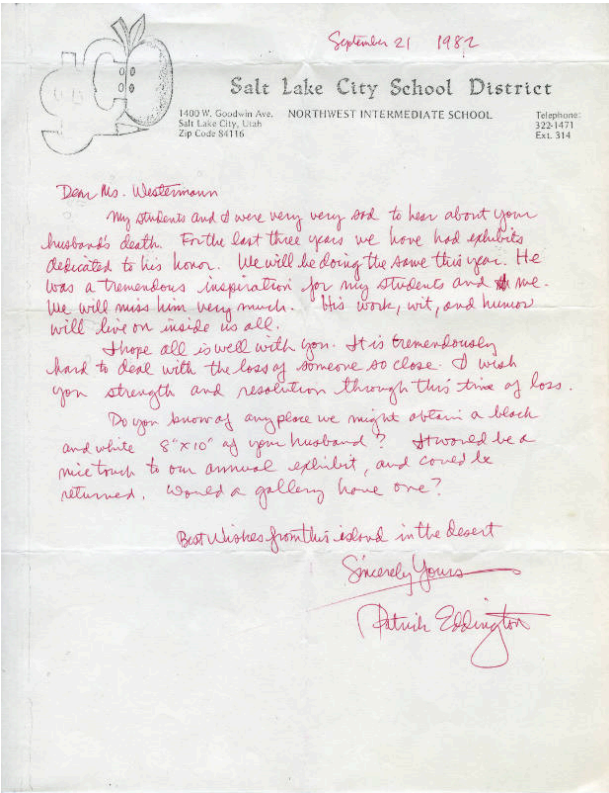 September 21 1982
Salt Lake City School District
1400 W. Goodwin Ave.
Salt Lake City, Utah
Zip Code 84116
NORTHWEST INTERMEDIATE SCHOOL
Telephone:
322-1471
Ext. 314
Dear Ms. Westermann
My students and I were very very sad to hear about your
husband's death. For the last three years we have had exhibits
dedicated to his honor. We will be doing the same this year. He
was a tremendous inspiration for my students and me.
We will miss him very much. His work, wit, and humor
will live on inside us all.
I hope all is well with you. It is tremendously
hard to deal with the loss of someone so close. I wish
you strength and resolution through this time of loss.
Do you know of any place we might obtain a black
and white 8"x10" of your husband? It would be a
nice touch to our annual exhibit, and could be
returned. Would a gallery have one?
Best Wishes from this island in the desert
Sincerely Yours
Patrick Eddington